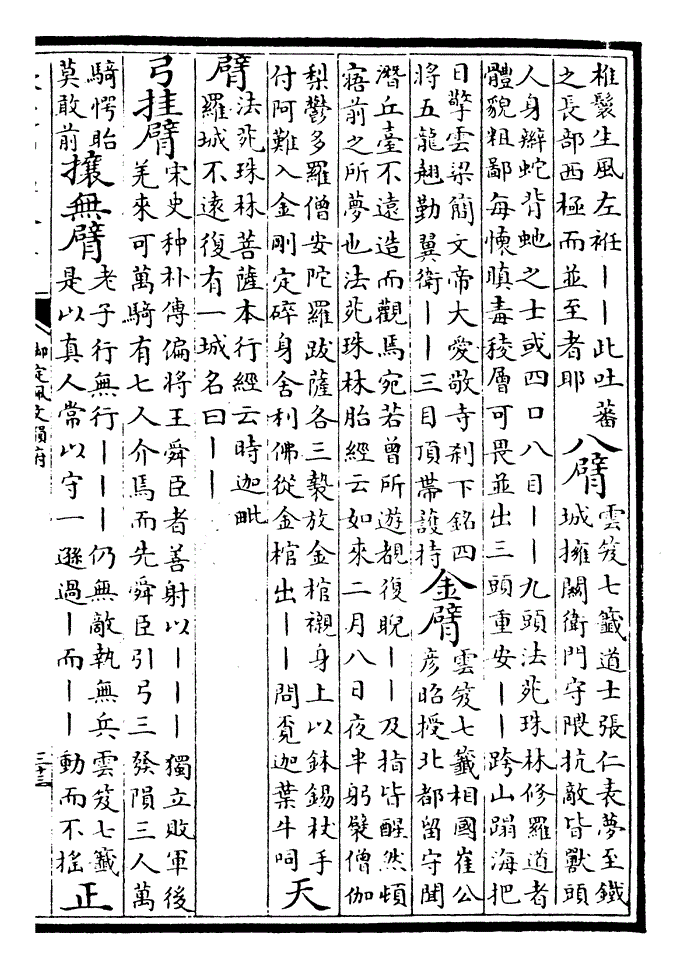 椎鬟生風左袵——此吐蕃
之長部西極而並至者耶
八臂
雲笈七籤道士張仁表夢至鐵
城擁闕衛門守隈抗敵皆獸頭
人身辮蛇背虵之士或四口八目——九頭法苑珠林修羅道者
體貌粗鄙每懷瞋毒稜層可畏並出三頭重安——跨山蹋海把
日擎雲梁簡文帝大愛敬寺刹下銘四
將五龍翹勤翼衛——三目頂帶護持
金臂
雲笈七籤相國崔公
彥昭授北都留守聞
潛丘臺不遠造而觀焉宛若曾所遊覩復睨——及指皆醒然頓
寤前之所夢也法苑珠林胎經云如來二月八日夜半躬襞僧伽
梨鬱多羅僧安陀羅跋薩各三㲲放金棺襯身上以鉢錫杖手
付阿難入金剛定碎身舍利佛從金棺出——問摩迦葉牛呞
天
臂
法苑珠林菩薩本行經云時迦毗
羅城不遠復有一城名曰——
弓挂臂
宋史种朴傳偏將王舜臣者善射以———獨立敗軍後
羌來可萬騎有七人介馬而先舜臣引弓三發隕三人萬
騎愕眙
莫敢前
攘無臂
老子行無行———仍無敵執無兵雲笈七籤
是以真人常以守一遜過—而——動而不搖
正
御定佩文韻府
三十三